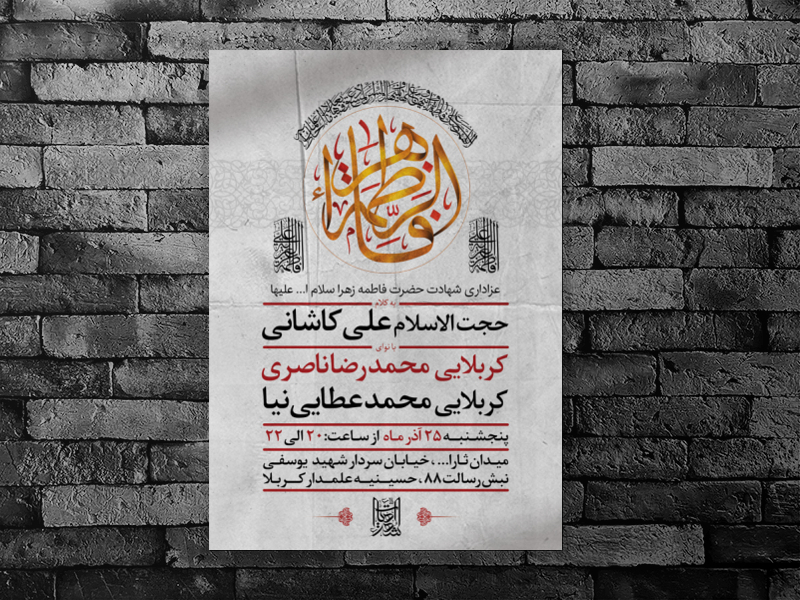 فاطمة الزهراء
عزاداری شهادت حضرت فاطمه زهرا سلام ا... علیها
به کلام
حجت الاسلام علی کاشانی
با نوای
کربلایی محمدرضا ناصری
کربلایی محمد عطایی نیا
پنجشنبه ۲۵ آذر ماه از ساعت: ۲۰ الی ۲۲
میدان ثارا...، خیابان سردار شهید یوسفی
نبش رسالت ۸۸، حسینیه علمدار کربلا